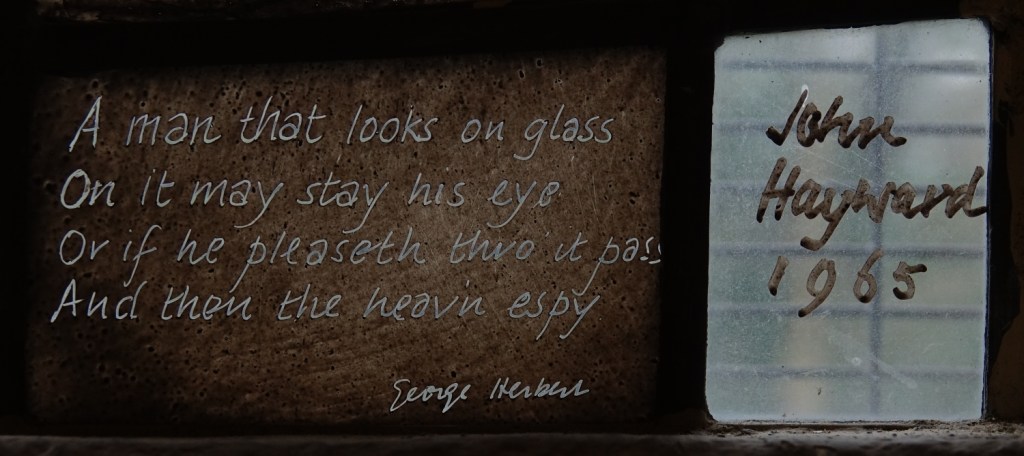 A man that looks on glass
On it may stay his eye
Or if he pleaseth thro it pass
And then the heav'n espy
George Herbert
John
Hayward
1965